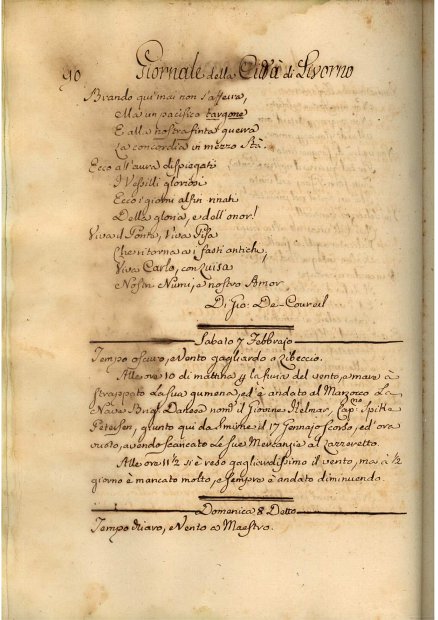 90 Giornale della Città di Livorno
Brando qui mai non s'affera,
Ma un pacifico targone
E alla nostra finta guerra
La concordia in mezzo stà.
Ecco all'aura dispiegati
I Vessilli gloriosi
Ecco i giorni alfin rinati
Della gloria, e dell'onor!
Viva il Ponte, Viva Pisa
Che ritorna a i fasti antichi,
Viva Carlo, con Luisa
Nostri Numi, e nostro Amor
Di Gio: De-Coureil
Sabato 7 Febbrajo
Tempo oscuro, e Vento gagliardo a Libeccio.
Alle ore 10 di mattina la furia del vento, e mare à
strappato la sua gumena, ed è andato al Marzocco La
Nave Brig. Danese nom.ta il Giovine Helmar, Cap.no
Petersen, giunto qui da Smirne il 17 Gennajo scorso, ed ora
vuoto, avendo scaricato le sue Mercanzie al Lazzeretto.
Alle ore 11 1/2 si è reso gagliardissimo il vento, ma à 1/2
giorno è mancato molto, e sempre è andato diminuendo.
Domenica 8 Detto
Tempo chiaro, e Vento a Maestro.